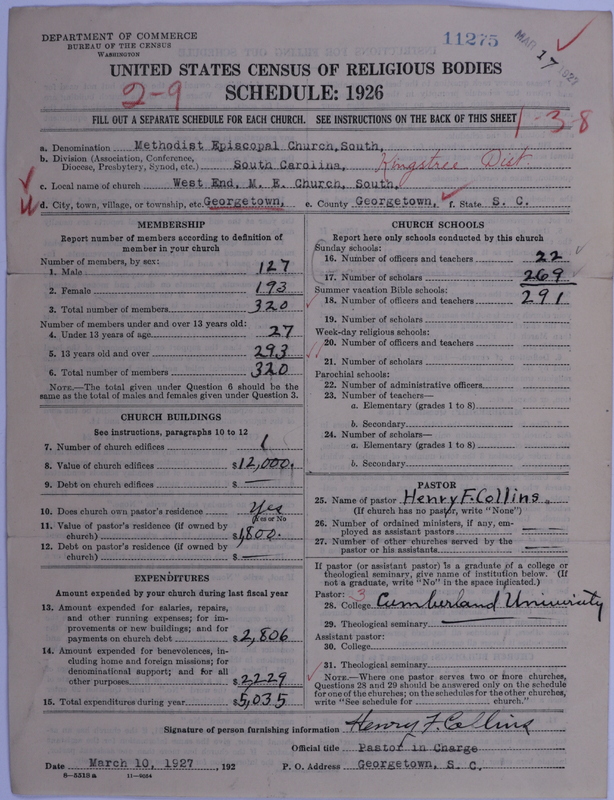 DEPARTMENT OF COMMERCE
BUREAU OF THE CENSUS
WASHINGTON
11275
MAR 17 1927
UNITED STATES CENSUS OF RELIGIOUS BODIES
2-9
SCHEDULE: 1926
FILL OUT A SEPARATE SCHEDULE FOR EACH CHURCH. SEE INSTRUCTIONS ON THE BACK OF THIS SHEET
1-3-8
a. Denomination Methodist Episcopal Church, South,
b. Division (Association, Conference, Diocese, Presbytery, Synod, etc.) South Carolina, Kingstree Dist
c. Local name of church West End, M. E. Church, South,
d. City, town, village, or township, etc. Georgetown, e. County Georgetown, f. State S. C.
MEMBERSHIP
Report number of members according to definition of
member in your church
Number of members, by sex:
1. Male 127
2. Female 193
3. Total number of members 320
Number of members under and over 13 years old:
4. Under 13 years of age 27
5. 13 years old and over 293
6. Total number of members 320
NOTE.—The total given under Question 6 should be the
same as the total of males and females given under Question 3.
CHURCH BUILDINGS
See instructions, paragraphs 10 to 12
7. Number of church edifices 1
8. Value of church edifices $12,000.
9. Debt on church edifices $ —
10. Does church own pastor's residence Yes
(Yes or No)
11. Value of pastor's residence (if owned by
church) $1,800.
12. Debt on pastor's residence (if owned by
church) $ —
EXPENDITURES
Amount expended by your church during last fiscal year
13. Amount expended for salaries, repairs,
and other running expenses; for im-
provements or new buildings; and for
payments on church debt $2,806
14. Amount expended for benevolences, in-
cluding home and foreign missions; for
denominational support; and for all
other purposes $2,229
15. Total expenditures during year $5,035
CHURCH SCHOOLS
Report here only schools conducted by this church
Sunday schools:
16. Number of officers and teachers 22
17. Number of scholars 269
Summer vacation Bible schools: 291
18. Number of officers and teachers
19. Number of scholars
Week-day religious schools:
20. Number of officers and teachers
21. Number of scholars
Parochial schools:
22. Number of administrative officers
23. Number of teachers—
a. Elementary (grades 1 to 8)
b. Secondary
24. Number of scholars—
a. Elementary (grades 1 to 8)
b. Secondary
PASTOR
25. Name of pastor Henry F. Collins
(If church has no pastor, write "None")
26. Number of ordained ministers, if any, em-
ployed as assistant pastors —
27. Number of other churches served by the
pastor or his assistants —
If pastor (or assistant pastor) is a graduate of a college or
theological seminary, give name of institution below. (If
not a graduate, write "No" in the space indicated.)
Pastor: 3
28. College Cumberland University
29. Theological seminary —
Assistant pastor:
30. College
31. Theological seminary
NOTE.—Where one pastor serves two or more churches,
Questions 28 and 29 should be answered only on the schedule
for one of the churches; on the schedules for the other churches,
write "See schedule for church."
Signature of person furnishing information Henry F. Collins
Official title Pastor in Charge
Date March 10, 1927, 192
P. O. Address Georgetown, S. C.
8-5518 a 11-9034